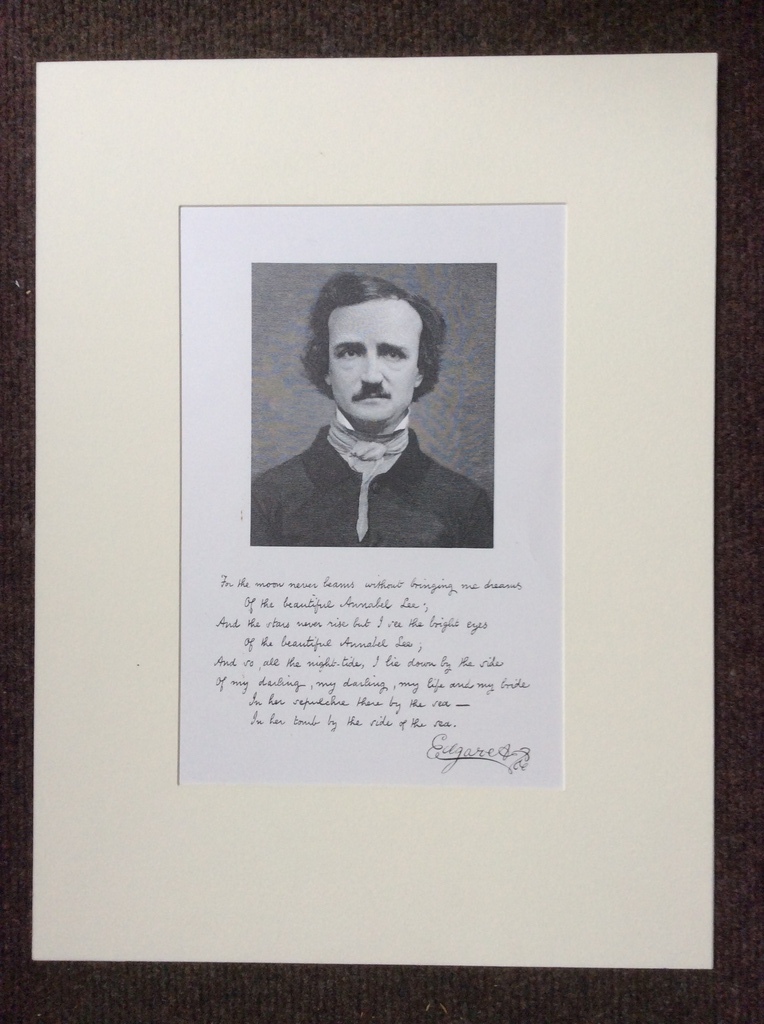 For the moon never beams without bringing me dreams
Of the beautiful Annabel Lee;
And the stars never rise but I see the bright eyes
Of the beautiful Annabel Lee;
And so, all the night-tide, I lie down by the side
Of my darling, my darling, my life and my bride
In her sepulchre there by the sea —
In her tomb by the side of the sea.
Edgar A Poe